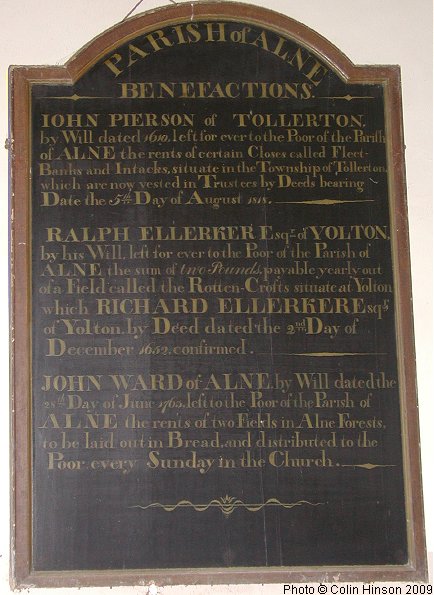 PARISH of ALNE
BENEFACTIONS
IOHN PIERSON of TOLLERTON,
by Will dated 1619, left for ever to the Poor of the Parish
of ALNE the rents of certain Closes called Fleet
Banks and Intacks, situate in the Township of Tollerton,
which are now vested in Trustees by Deeds bearing
Date the 5th Day of August 1818.
RALPH ELLERKER Esqr. of YOLTON,
by his Will, left for ever to the Poor of the Parish of
ALNE the sum of two-Pounds, payable yearly out
of a Field called the Rotten-Crofts situate at Yolton
which RICHARD ELLERKERE Esqr.
of Yolton, by Deed dated the 2nd Day of
December 1652, confirmed.
JOHN WARD of ALNE, by Will dated the
28th Day of June 1765, left to the Poor of the Parish of
ALNE the rents of two Fields in Alne Forests,
to be laid out in Bread, and distributed to the
Poor every Sunday in the Church.
Photo © Colin Hinson 2009